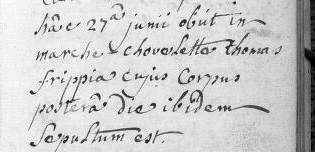 hâc 27â junii obiit in
marche-chovelette thomas
frippia cujus corpus
posterâ die ibidem
sepultum est.